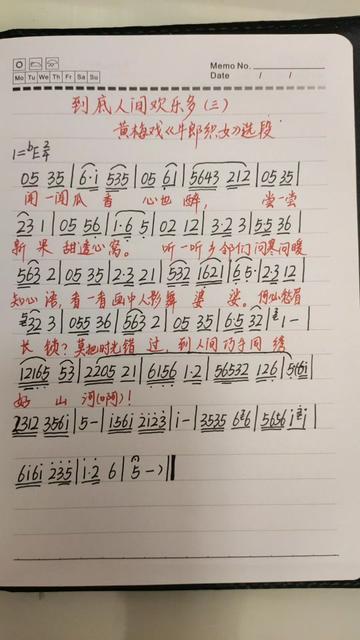 Memo No.
Mo Tu We Th Fr Sa Su
Date / /
到底人间欢乐多(三)
黄梅戏《牛郎织女》选段
1=bE 2/4
05 35 | 6·i 535 | 05 61 | 5643 212 | 05 35 |
闻一闻瓜香 心也醉, 尝一尝
23 1 | 05 56 | 1·6 5 | 02 12 | 3·2 3 | 55 36 |
新果甜透心窝。 听一听乡邻们问寒问暖
563 2 | 05 35 | 2·3 21 | 532 1621 | 65· | 2·3 12 |
知心语,看一看画中人影舞婆娑。何似愁眉
532 3 | 055 36 | 563 2 | 05 35 | 6·5 32 | 1 — |
长锁?莫把时光错过,到人间巧手同绣
12165 53 | 2205 21 | 6156 1·2 | 56532 126 | 5
好山河(啊)!
2312 356i | 5 — | i56i 2123 | i — | 3535 6 6 | 5656 i i |
6i6i 235 | 1·2 6 | 5 — ) ‖